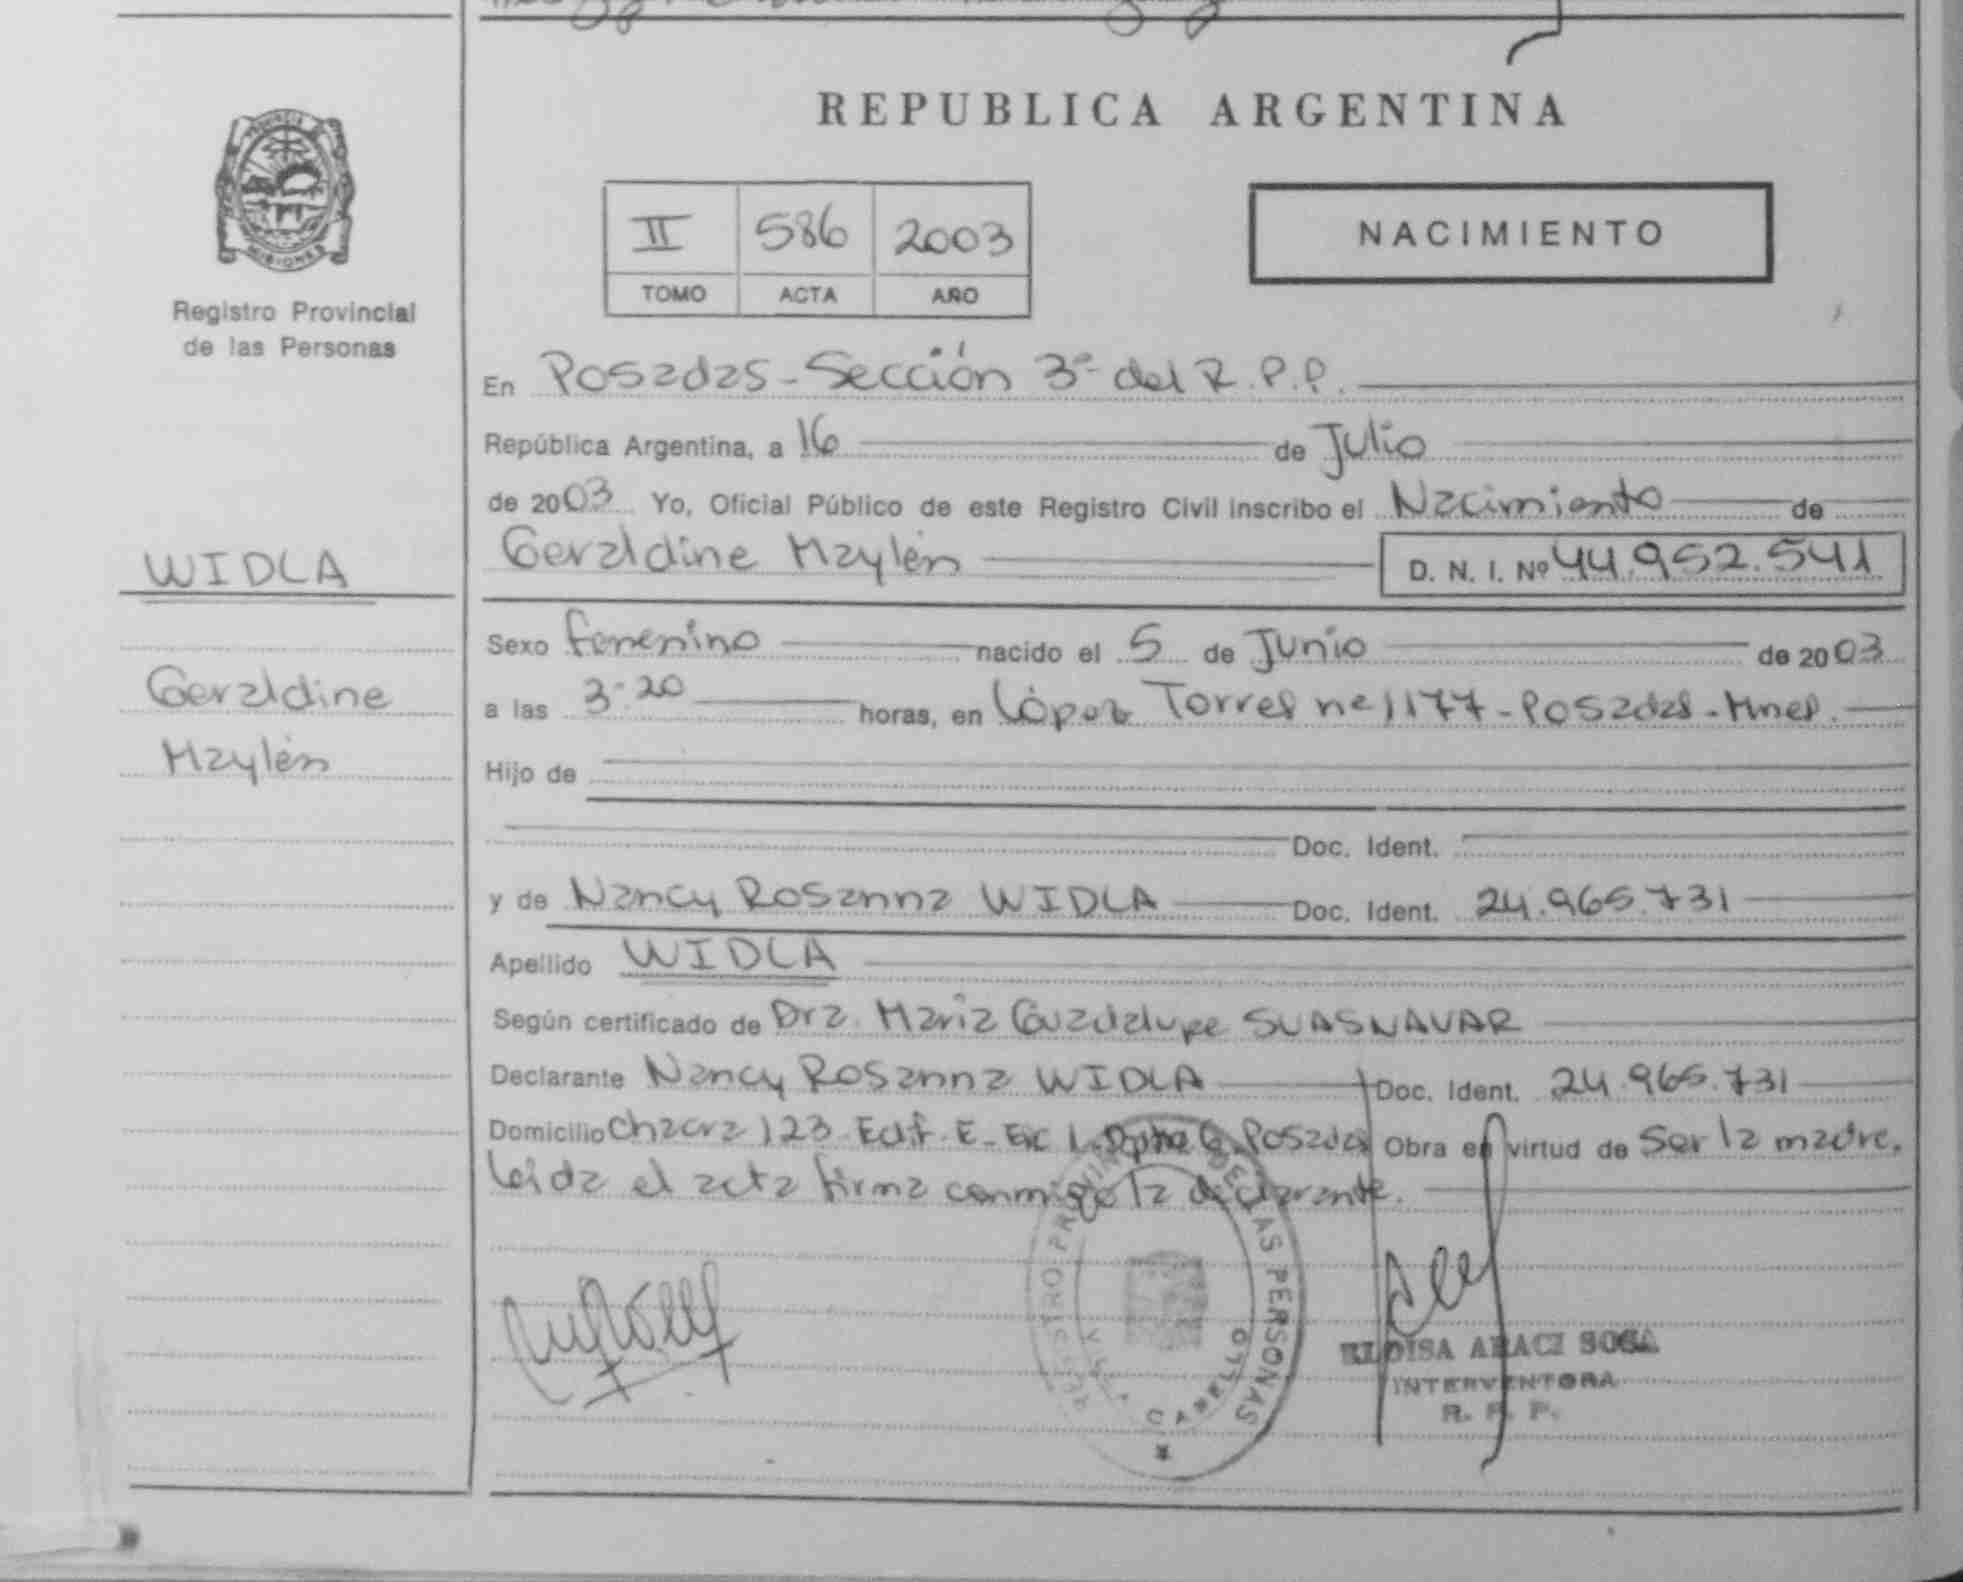 REPUBLICA ARGENTINA
PROVINCIA DE
MISIONES
Registro Provincial
de las Personas
II 586 2003
TOMO ACTA AÑO
NACIMIENTO
WIDLA
Geraldine
Maylén
En Posadas - Sección 3ª del R.P.P.
República Argentina, a 16 de Julio
de 2003 Yo, Oficial Público de este Registro Civil inscribo el Nacimiento de
Geraldine Maylén D. N. I. Nº 44.952.541
Sexo femenino nacido el 5 de Junio de 2003
a las 3.20 horas, en López Torres nº 1177 - Posadas - Mnes.
Hijo de
Doc. Ident.
y de Nancy Rosanna WIDLA Doc. Ident. 24.965.731
Apellido WIDLA
Según certificado de Dra. Maria Guadalupe SUASNAVAR
Declarante Nancy Rosanna WIDLA Doc. Ident. 24.965.731
Domicilio Chacra 123 Edif. E - Esc 1 Posadas Obra en virtud de ser la madre.
leida el acta firma conmigo la declarante.
REGISTRO PROVINCIAL DE LAS PERSONAS
VILLA CABELLO
ELOISA ARACI SOSA
INTERVENTORA
R. P. P.